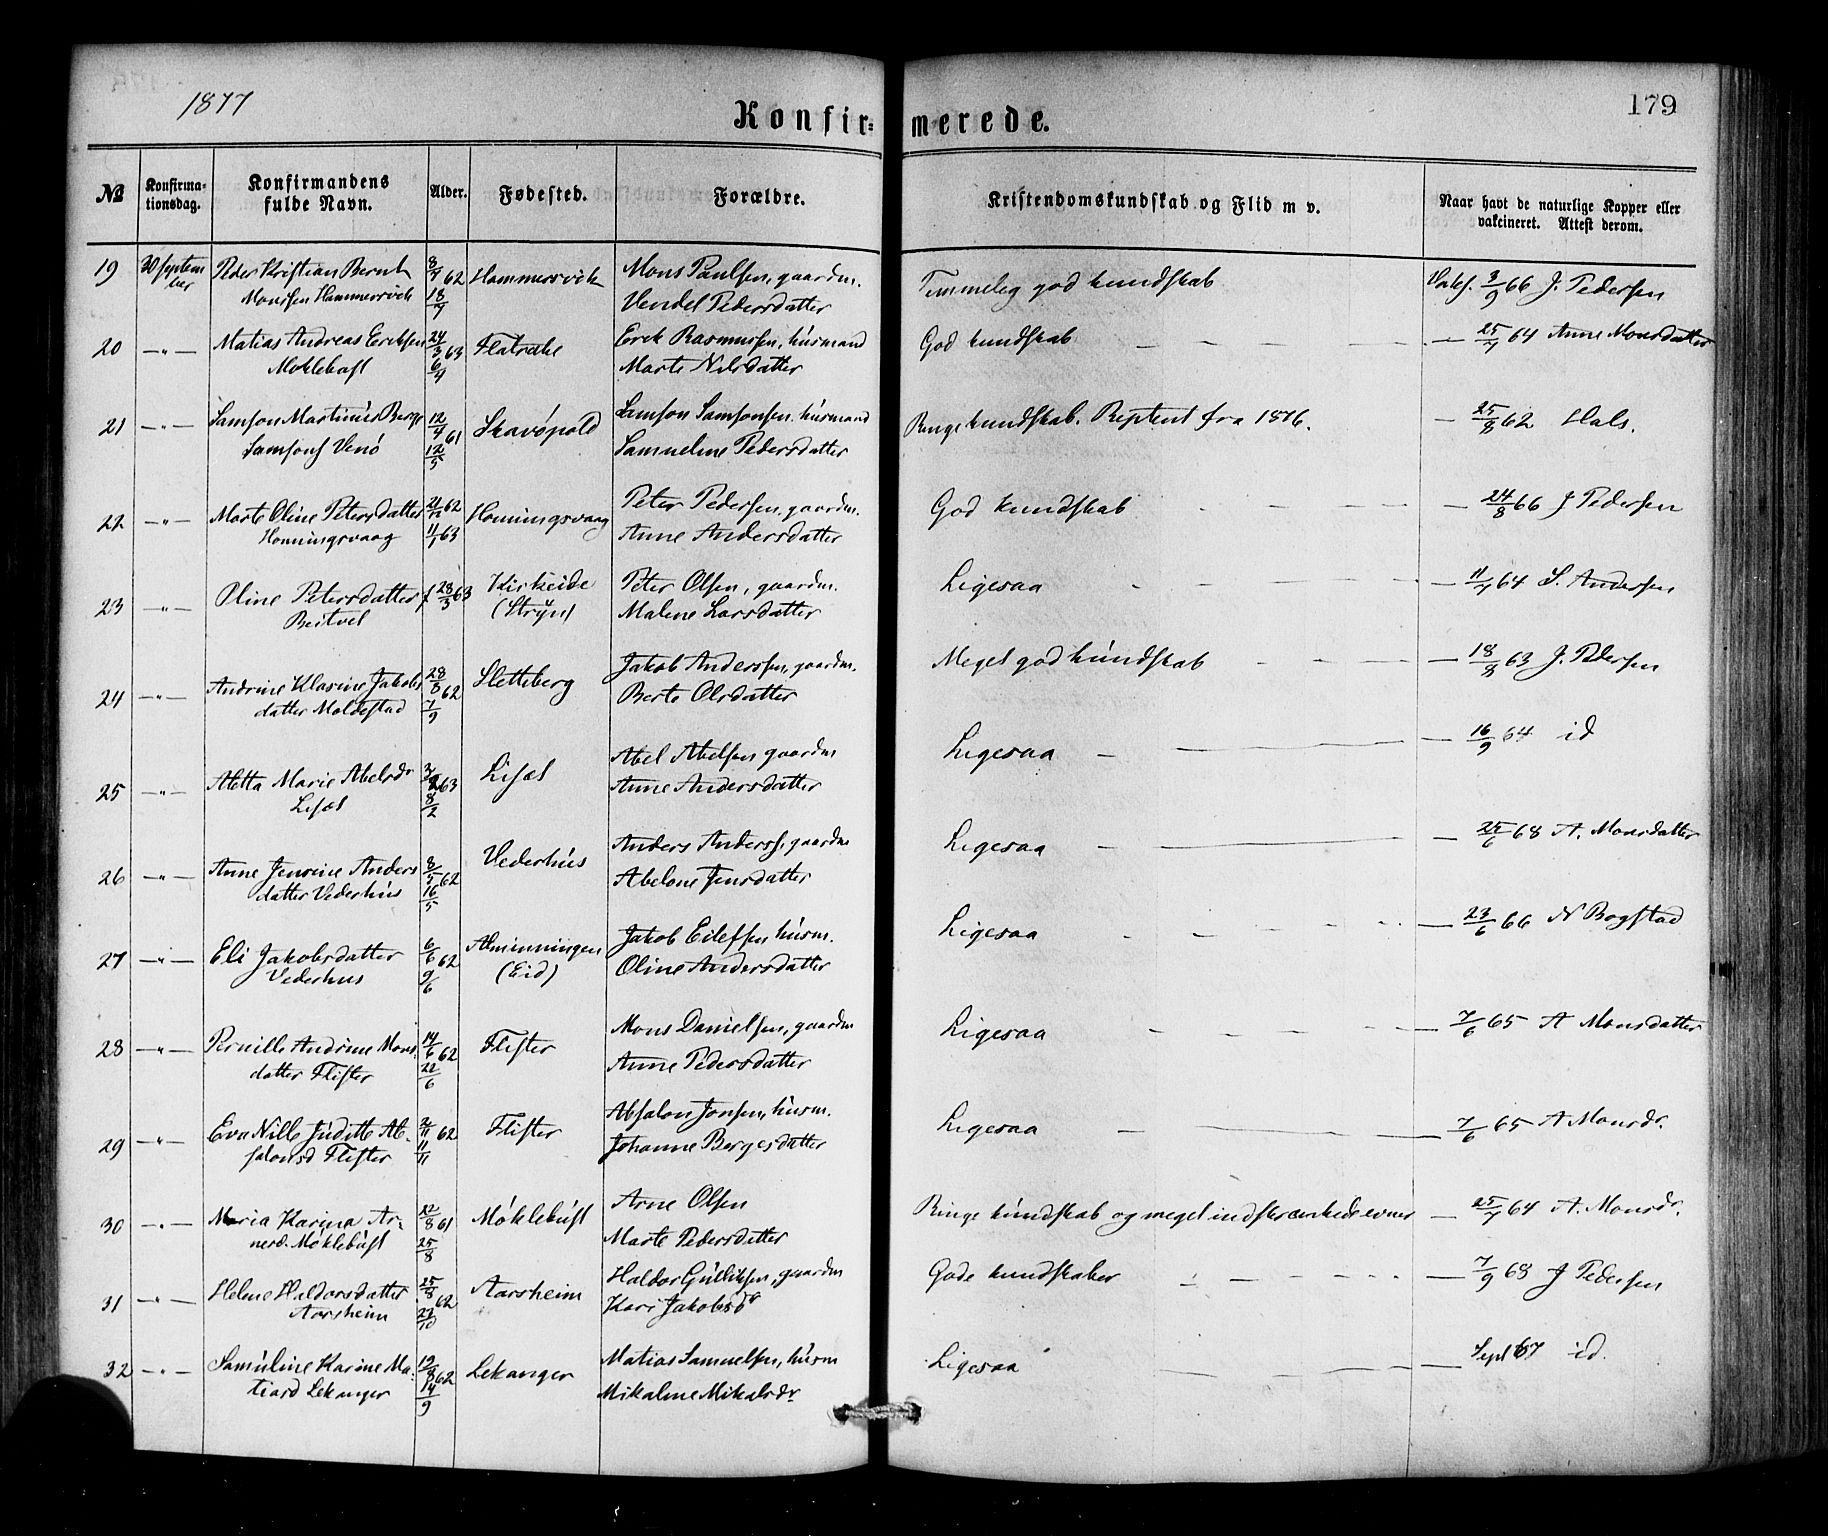 1877
Konfir=
merede.
179
No
Konfirma-
tionsdag.
Konfirmandens
fulde Navn.
Alder.
Fødested.
Forældre.
Kristendomskundskab og Flid m v.
Naar havt de naturlige Kopper eller
vakcineret. Attest derom.
19 30 Septem Peder Kristian Bernt 8/7 62 Hammersvik Mons Paulsen, gaardm. Temmelig god kundskab Vaks. 3/9 66 J. Pedersen
ber Monssen Hammersvik 18/7 Vendel Pedersdatter
20 —"— Matias Andreas Eriksen 24/3 63 Flatrake Erik Rasmussen, husmand God kundskab — 25/7 64 Anne Monsdatter
Moklebust 6/4 Marte Nilsdatter
21 —"— Samson Martinus Berge 12/4 61 Skavøpold Samson Samsonsen husmand Ringe kundskab. Reptent fra 1876. — 25/8 62 Hals.
Samsons Venø 12/5 Samueline Pedersdatter
22 —"— Marte Oline Petersdatter 62 Honningsvaag Peter Pedersen, gaardm. God kundskab — 24/8 66 J Pedersen
Honningsvaag 11/1 63 Anne Andersdatter
23 —"— Oline Petersdatter f 28/3 63 Kirkeide Peter Olsen, gaardm. Ligesaa — 11/7 64 S. Andersen
Beitvel (Stryn) Malene Larsdatter
24 —"— Andrine Klasine Jakobs 28/8 62 Sletteberg Jakob Anderssen, gaardm. Meget god kundskab — 18/8 63 J. Pedersen
datter Moldestad 7/9 Berte Olsdatter
25 —"— Aletta Marie Abelsdr 63 Lisæt Abel Abelsen gaardm Ligesaa — 16/9 64 id
Lisæt 8/2 Anne Andersdatter
26 —"— Anne Jensine Anders 8/5 62 Vederhus Anders Anderss, gaardm Ligesaa — 25/6 68 A. Monsdatter
datter Vederhus 16/5 Abelone Jensdatter
27 —"— Eli Jakobsdatter 6/6 62 Alminningen Jakob Eilefsen husm. Ligesaa — 23/6 66 N Bogstad
Vederhus 9/6 (Eid) Oline Andersdatter
28 —"— Pernille Andrine Mons 14/6 62 Flister Mons Danielsen, gaardm Ligesaa — 7/6 65 A Monsdatter
datter Flister 22/6 Anne Pedersdatter
29 —"— Eva Nille Juditte Ab- 2/11 62 Flister Absalon Jonsen, husm. Ligesaa — 7/6 65 A Monsdr.
salonsd Flister 11/11 Johanne Bergesdatter
30 —"— Maria Karina Ar- 22/8 61 Møklebust Arne Olsen Ringe kundskab og meget indskrænkede evner — 25/7 64 A. Monsdr.
nesd. Møklebust 25/8 Marte Pedersdatter
31 —"— Helene Haldorsdatter 25/8 62 Aarsheim Haldor Gulliksen, gaardm Gode kundskaber — 7/9 68 J Pedersen
Aarsheim 22/10 Kari Jakobsdr
32 —"— Samuline Karine Ma- 19/8 62 Lekanger Matias Samuelsen, husm Ligesaa — Sept 67 id.
tiasd Lekanger 14/9 Mikaline Mikalsdr